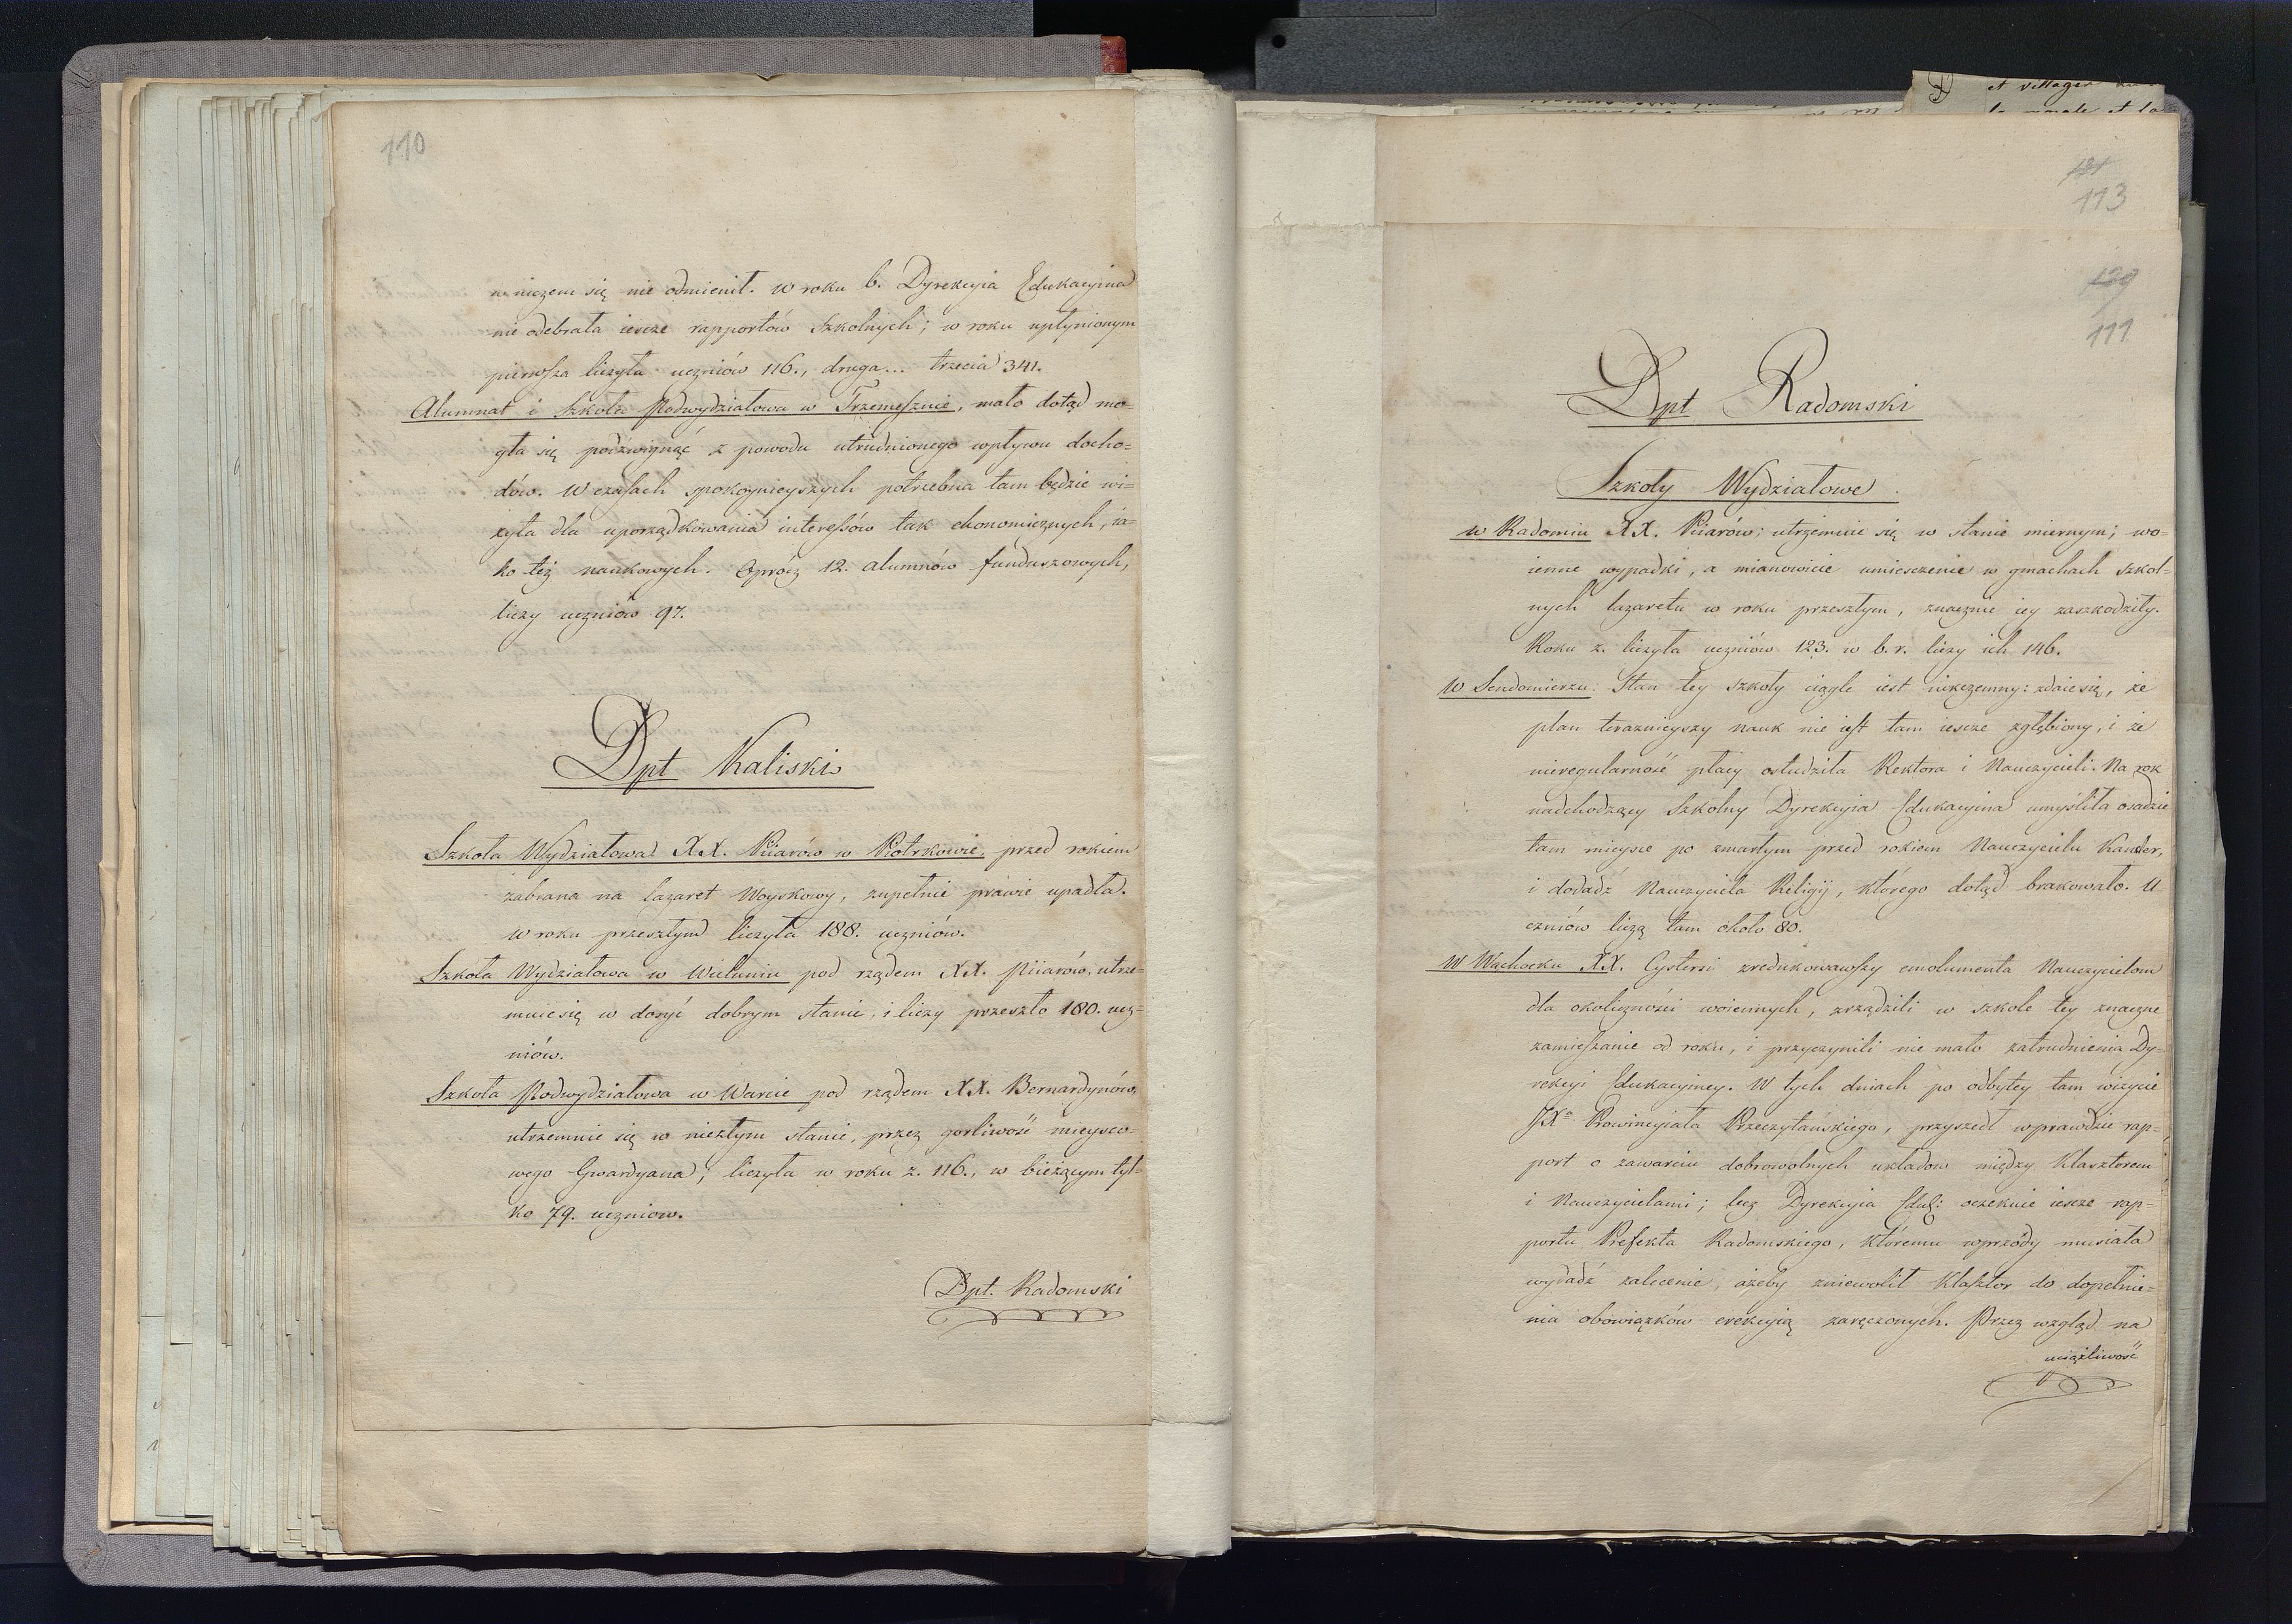 110
w niczem się nie odmienił. W roku b. Dyrekcyia Edukacyina
nie odebrała iescze rapportów szkolnych; w roku upłynionym
pierwsza liczyła uczniów 116., druga... trzecia 341.
Alumnat i Szkoła Podwydziałowa w Trzemesznie, mało dotąd mo=
gła się podźwignąć z powodu utrudnionego wpływu docho=
dów. W czasach spokoynieyszych potrzebna tam będzie wi=
zyta dla uporządkowania interessów tak ekonomicznych, ia=
ko też naukowych. Oprócz 12. alumnów funduszowych,
liczy uczniów 97.
Dpt Kaliski
Szkoła Wydziałowa XX. Piiarów w Piotrkowie, przed rokiem
zabrana na lazaret Woyskowy, zupełnie prawie upadła.
W roku przeszłym liczyła 188. uczniów.
Szkoła Wydziałowa w Wieluniu pod rządem XX. Piiarów, utrze=
muie się w dosyć dobrym stanie, i liczy przeszło 180. ucz=
niów.
Szkoła Podwydziałowa w Warcie pod rządem XX. Bernardynów,
utrzemuie się w niezłym stanie, przez gorliwość mieysco=
wego Gwardyana; liczyła w roku z. 116., w bieżącym tyl=
ko 79. uczniow.
Dpt. Radomski
121
113
129
111
Dpt Radomski
Szkoły Wydziałowe.
w Radomiu XX. Piiarów; utrzemuie się w stanie miernym; wo=
ienne wypadki, a mianowicie umiesczenie w gmachach szkol=
nych lazaretu w roku przeszłym, znacznie iey zaszkodziły.
Roku z. liczyła uczniów 123. w b. r. liczy ich 146.
W Sendomierzu: Stan tey szkoły ciągle iest nikczemny: zdaie się, że
plan teraznieyszy nauk nie iest tam iescze zgłębiony, i że
nieregularność płacy ostudziła Rektora i Nauczycieli. Na rok
nadchodzący Szkolny Dyrekcyia Edukacyina umyśliła osadzić
tam mieysce po zmarłym przed rokiem Nauczycielu Kander,
i dodadź Nauczyciela Religij, którego dotąd brakowało. U
czniów liczą tam około 80.
W Wąchocku XX. Cystersi zredukowawszy emolumenta Nauczycielom
dla okoliczności woiennych, zrządzili w szkole tey znaczne
zamieszanie od roku, i przyczynili nie mało zatrudnienia Dy=
rekcyi Edukacyiney. W tych dniach po odbytey tam wizycie
JXa Prowincyiała Przeczytańskiego, przyszedł wprawdzie rap=
port o zawarciu dobrowolnych układow między Klasztorem
i Nauczycielami; lecz Dyrekcyia Eduk: oczekuie iescze rap=
portu Prefekta Radomskiego, któremu wprzódy musiała
wydadź zalecenie, ażeby zniewolił Klasztor do dopełnie=
nia obowiązków erekcyią zaręczonych. Przez wzgląd na
uciążliwość